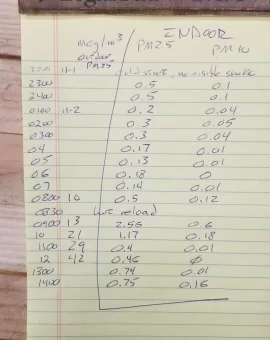 INDOOR
mcg/m³ PM25 PM10
outdoor
PM25
11-1 cold start, no visible smoke
2300 0.5 0.1
2400 0.5 0.1
0100 11-2 0.2 0.04
0200 0.3 0.05
0300 0.3 0.04
04 0.17 0.01
05 0.13 0.01
06 0.18 0
07 0.14 0.01
0800 10 0.5 0.12
0830 hot reload
0900 13 2.55 0.6
10 21 1.17 0.18
1100 29 0.4 0.01
12 42 0.46 ϕ
1300 0.74 0.01
1400 0.75 0.16